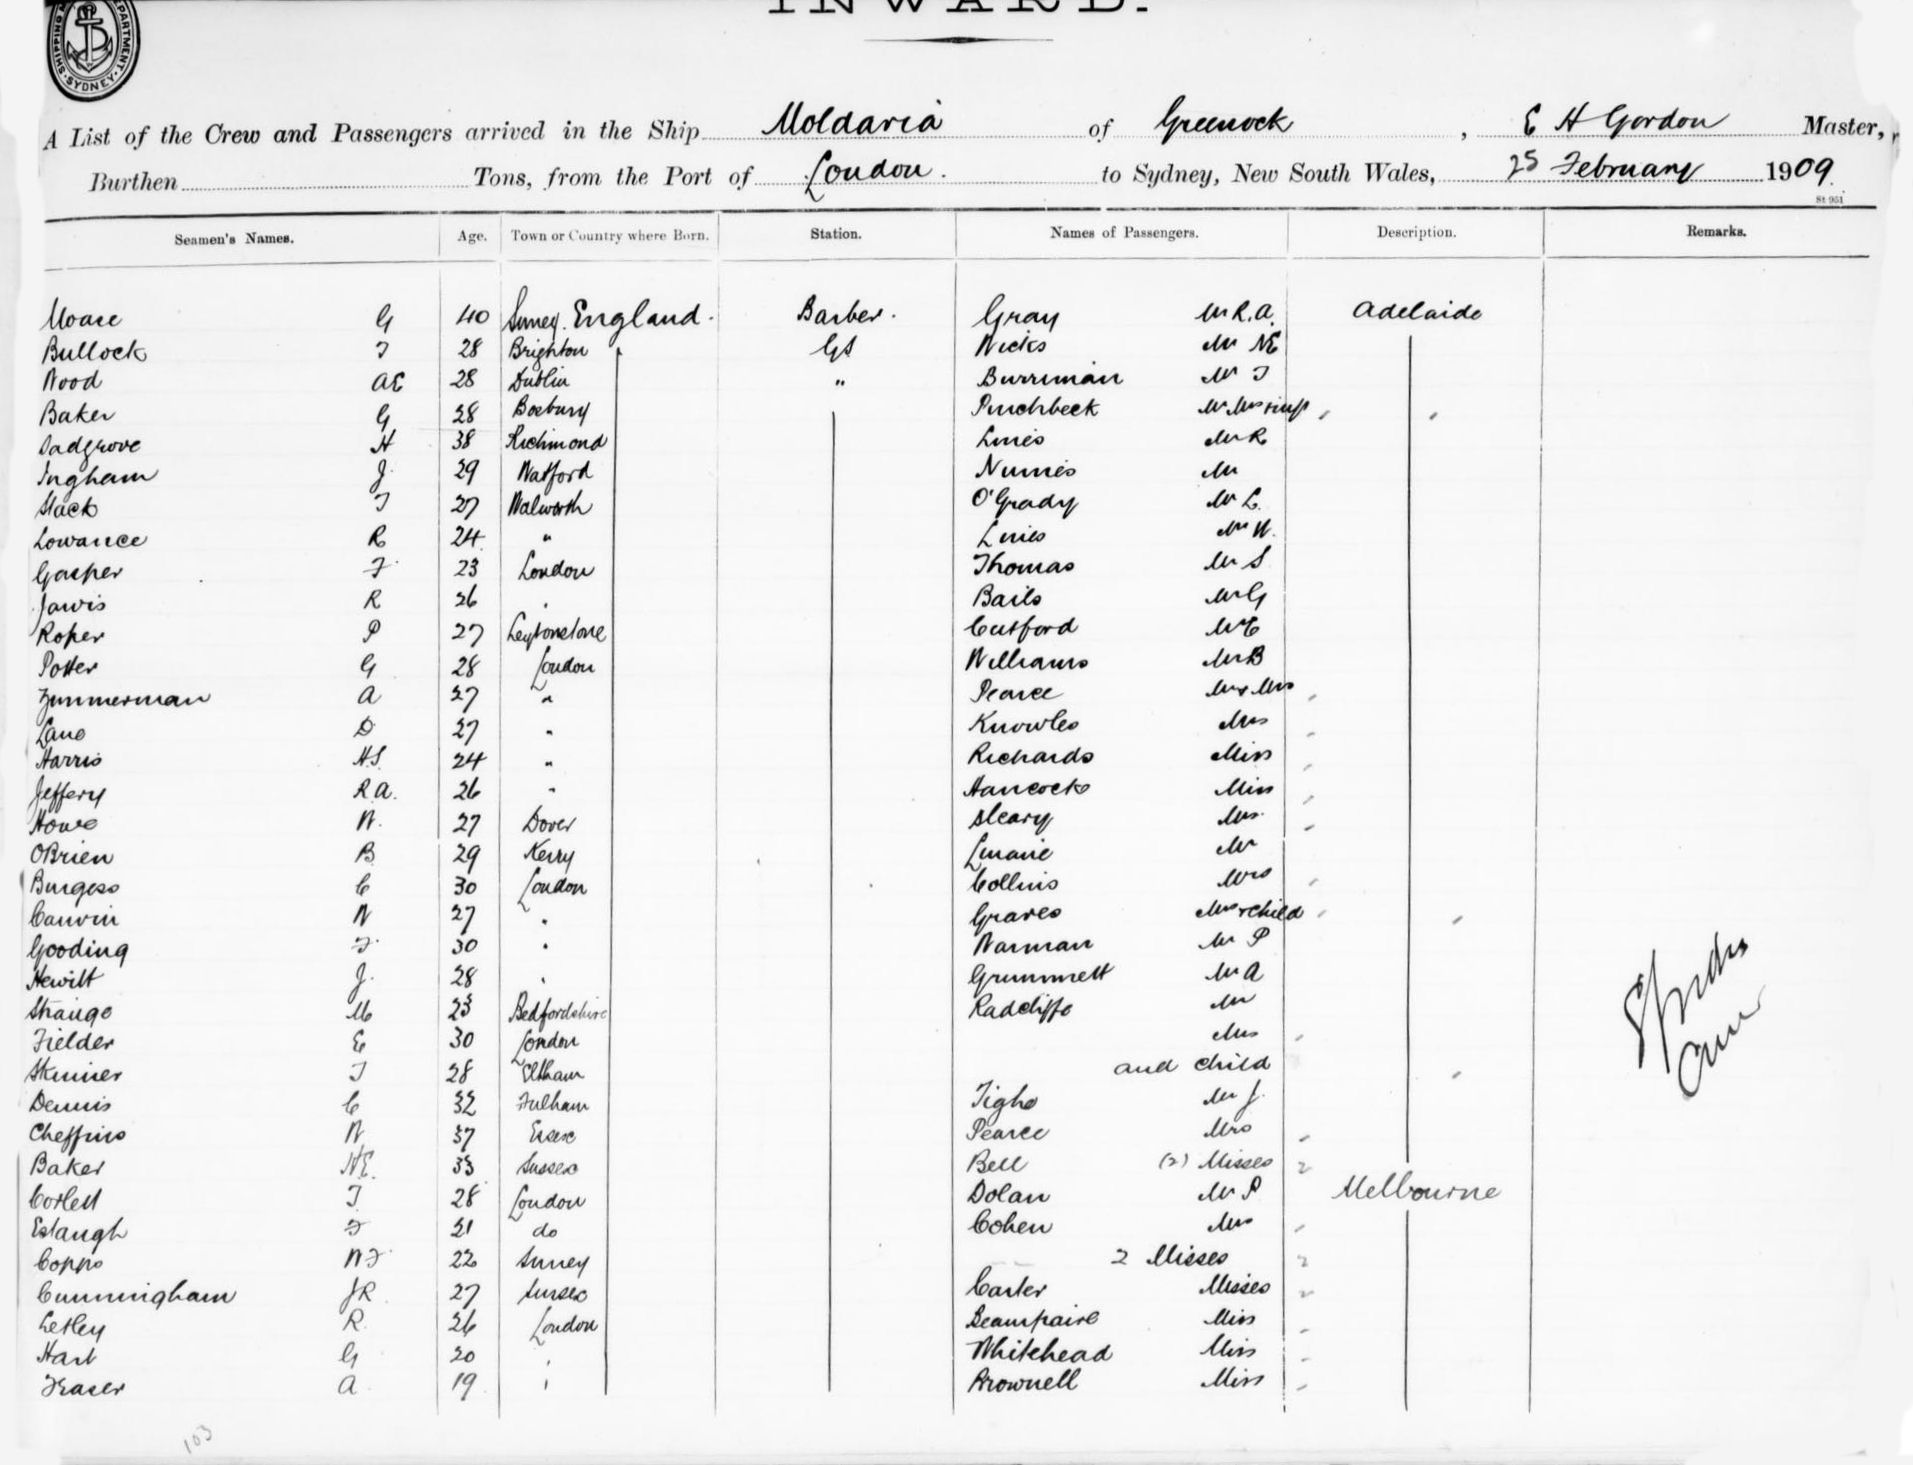 INWARD.
SHIPPING DEPARTMENT. SYDNEY.
A List of the Crew and Passengers arrived in the Ship Moldavia of Greenock, E H Gordon Master,
Burthen Tons, from the Port of London. to Sydney, New South Wales, 25 February 1909.
St 951
Seamen's Names. Age. Town or Country where Born. Station. Names of Passengers. Description. Remarks.
G 40 Surrey. England. Barber. Gray Mr R.A. Adelaide
Bullock T 28 Brighton GS Nicks Mr NE
Wood AE 28 Dublin " Burriman Mr T
Baker G 28 Bosbury Pinchbeck Mr Mrs
Sadgrove H 38 Richmond Lines Mr R
Ingham J. 29 Watford Nunes Mr
Slack T 27 Walworth O'Grady Mr L.
Lowance R 24 " Lines Mr W.
Gasper F 23 London Thomas Mr S
Jarvis R 26 " Bails Mr G
Roper P 27 Leytonstone Cutford Mr E
Potter G 28 London Williams Mr B
Zimmerman A 27 " Pearce Mr & Mrs
Lane D 27 " Knowles Mrs
Harris H.S. 24 " Richards Miss
Jeffery R.A. 26 " Hancocks Miss
Howe W. 27 Dover Sleary Mrs.
OBrien B 29 Kerry Mr
Burgess C 30 London Collins Mrs
Canvin W 27 " Graves Mrs & child
Gooding F 30 " Warman Mr P
Hewitt J. 28 " Grummett Mr A
Strange M 23 Bedfordshire Radcliffe Mr
Fielder E 30 London Mrs
Skinner T 28 Eltham and child
Dennis C 32 Fulham Tighe Mr J.
Cheffins W 37 Essex Pearce Mrs
Baker N.E. 33 Sussex Bell (2) Misses 2
Corlett T. 28 London Dolan Mr P Melbourne
Eslaugh F 21 do Cohen Mrs
Copps W F 22 Surrey 2 Misses 2
Cunningham J R 27 Sussex Carter Misses 2
Letley R. 26 London Beaurpaire Miss
Hart G 20 " Whitehead Miss
Fraser A 19 " Brownell Miss
103